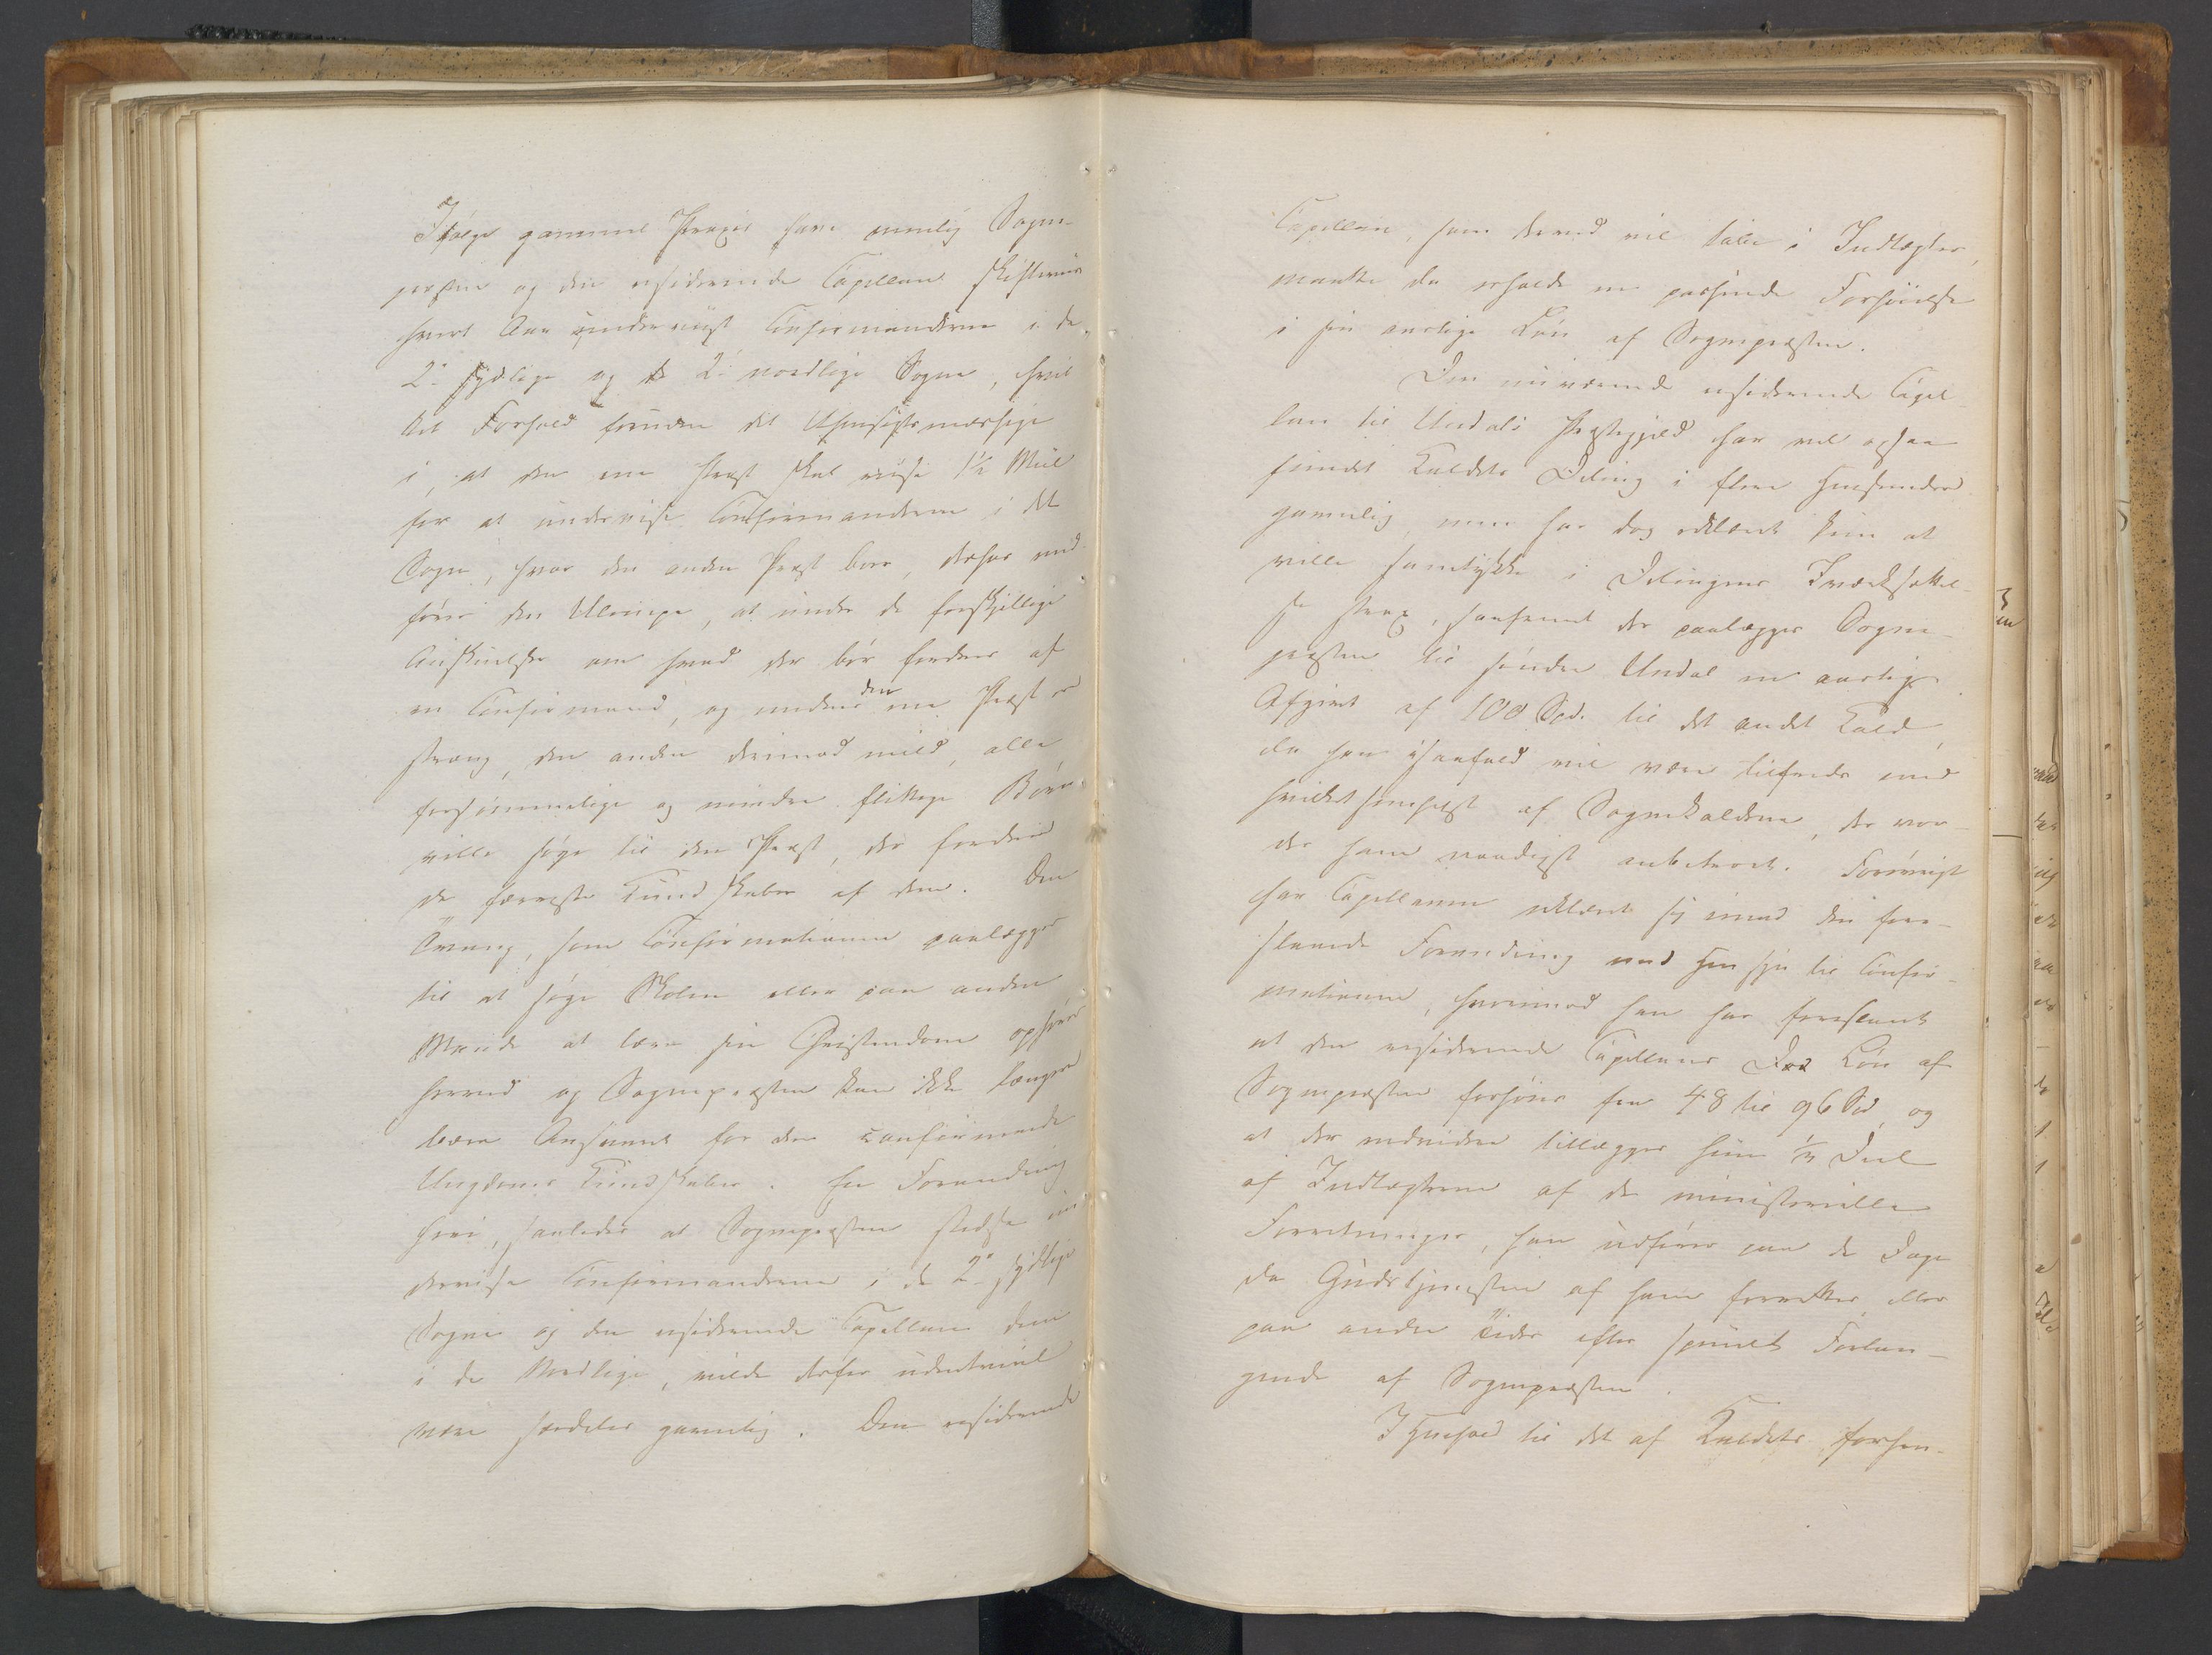 Ifølge gammel Praxis have nemlig Sogne-
præsten og den residerende Capellan skifteviis
hvert Aar underviist Confirmanderne i de
2de sydlige og de 2de nordlige Sogne, hvil
ket Forhold foruden det Uhensigtsmæssige
i, at den ene Præst skal reise 1½ Miil
for at undervise Confirmanderne i det
Sogn, hvor den anden Præst boer, derhos med
fører den Ulempe, at under de forskjellige
Anskuelser om hvad der bør fordres af
en Confirmand, og medens den ene Præst er
streng, den anden derimod mild, alle
forsømmelige og mindre flittige Børn
ville søge til den Præst, der fordrer
de færreste Kundskaber af dem. Den
Tvang, som Confirmationen paalægger
til at søge Skolen eller paa anden
Maade at lære sin Christendom ophører
herved og Sognepræsten kan ikke længer
bære Ansvaret for den confirmerede
Ungdoms Kundskaber. En Forandring
heri, saaledes at Sognepræsten stedse un
derviser Confirmanderne i de 2de sydlige
Sogne og den residerende Capellan dem
i de Nordlige, vilde derfor udentvivl
være særdeles gavnlig. Den residerende
Capellan, som derved vil tabe i Indtægter,
maatte da erholde en passende Forhøielse
i sin aarlige Løn af Sognepræsten.
Den nuværende residerende Capel-
lan til Undals Præstegjeld har vel ogsaa
fundet Kaldets Deling i flere Henseender
gavnlig, men har dog erklæret kun at
ville samtykke i Delingens Iværksættel-
se strax, saafremt der paalægges Sogne-
præsten til søndre Undal en aarlig
Afgivt af 100 Spd. til det andet Kald,
da han isaafald vil være tilfreds med
hvilketsomhelst af Sognekaldene, der vor-
der ham naadigst anbetroet. Forøvrigt
har Capellanen erklæret sig imod den fore-
slaaede Forandring med Hensyn til Confir-
mationen, hvorimod han har foreslaaet
at den residerende Capellans Løn af
Sognepræsten forhøies fra 48 til 96 Spd, og
at der endvidere tillægges ham ⅓ Deel
af Indtægterne af de ministerielle
Forretninger, han udfører paa de Dage
da Gudstjenesten af ham forrettes eller
paa andre Tider efter specielt Forlan-
gende af Sognepræsten.
I Henhold til det af Kaldets forhen-